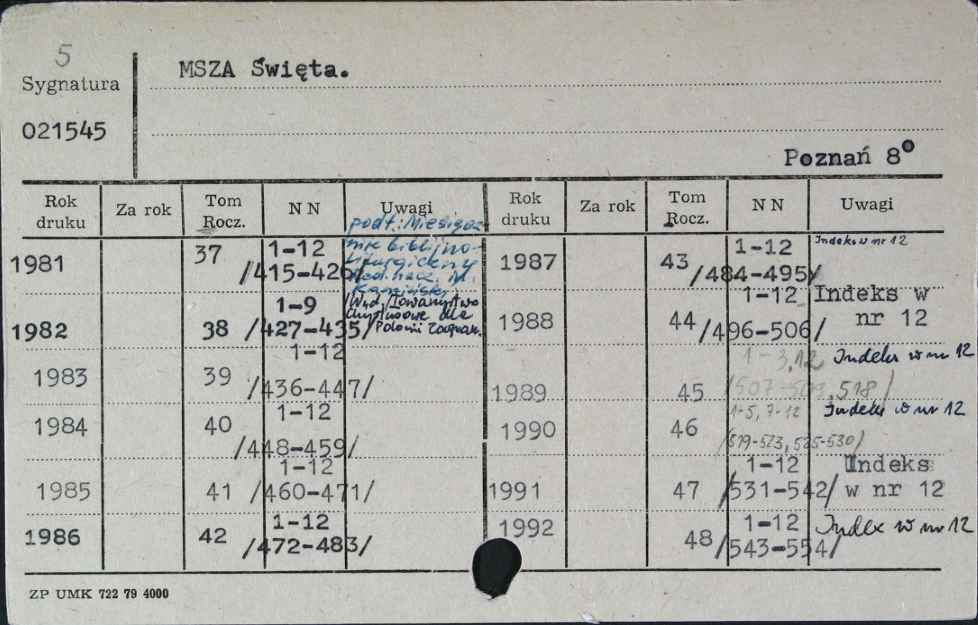 5
Sygnatura
MSZA Święta.
021545
Poznań 8°
Rok druku Za rok Tom Rocz. N N Uwagi Rok druku Za rok Tom Rocz. N N Uwagi
1981 37 1-12 /415-426/ podt.: Miesięcznik biblijno-liturgiczny
/Wyd. Towarzystwo Chrystusowe dla Polonii Zagran.
1982 38 1-9 /427-435/
1983 39 1-12 /436-447/
1984 40 1-12 /448-459/
1985 41 1-12 /460-471/
1986 42 1-12 /472-483/
1987 43 1-12 /484-495/ Indeks w nr 12
1988 44 1-12 /496-506/ Indeks w nr 12
1989 45 1-3,12 /507-509,518/ Indeks w nr 12
1990 46 1-5, 7-12 /519-523, 525-530/ Indeks w nr 12
1991 47 1-12 /531-542/ Indeks w nr 12
1992 48 1-12 /543-554/ Index w nr 12
ZP UMK 722 79 4000